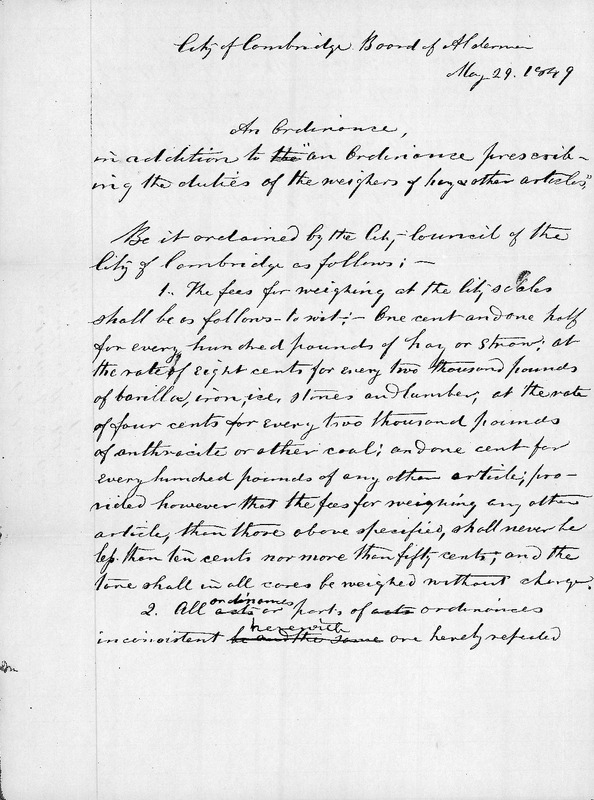 City of Cambridge Board of Aldermen
May 29. 1849
An Ordinance,
in addition to the "an Ordinance prescrib-
ing the duties of the weighers of hay & other articles,"
Be it ordained by the City Council of the
City of Cambridge as follows; —
1. The fees for weighing at the City scales
shall be as follows - to wit; - One cent and one half
for every hundred pounds of hay or straw; at
the rate of eight cents for every two thousand pounds
of barilla, iron, ice, stones and lumber; at the rate
of four cents for every two thousand pounds
of anthracite or other coal; and one cent for
every hundred pounds of any other article; pro-
vided however that the fees for weighing any other
article, than those above specified, shall never be
less than ten cents nor more than fifty cents; and the
tare shall in all cases be weighed without charge.
2. All acts ordinances or parts of acts ordinances
inconsistent be and the same herewith are hereby repealed